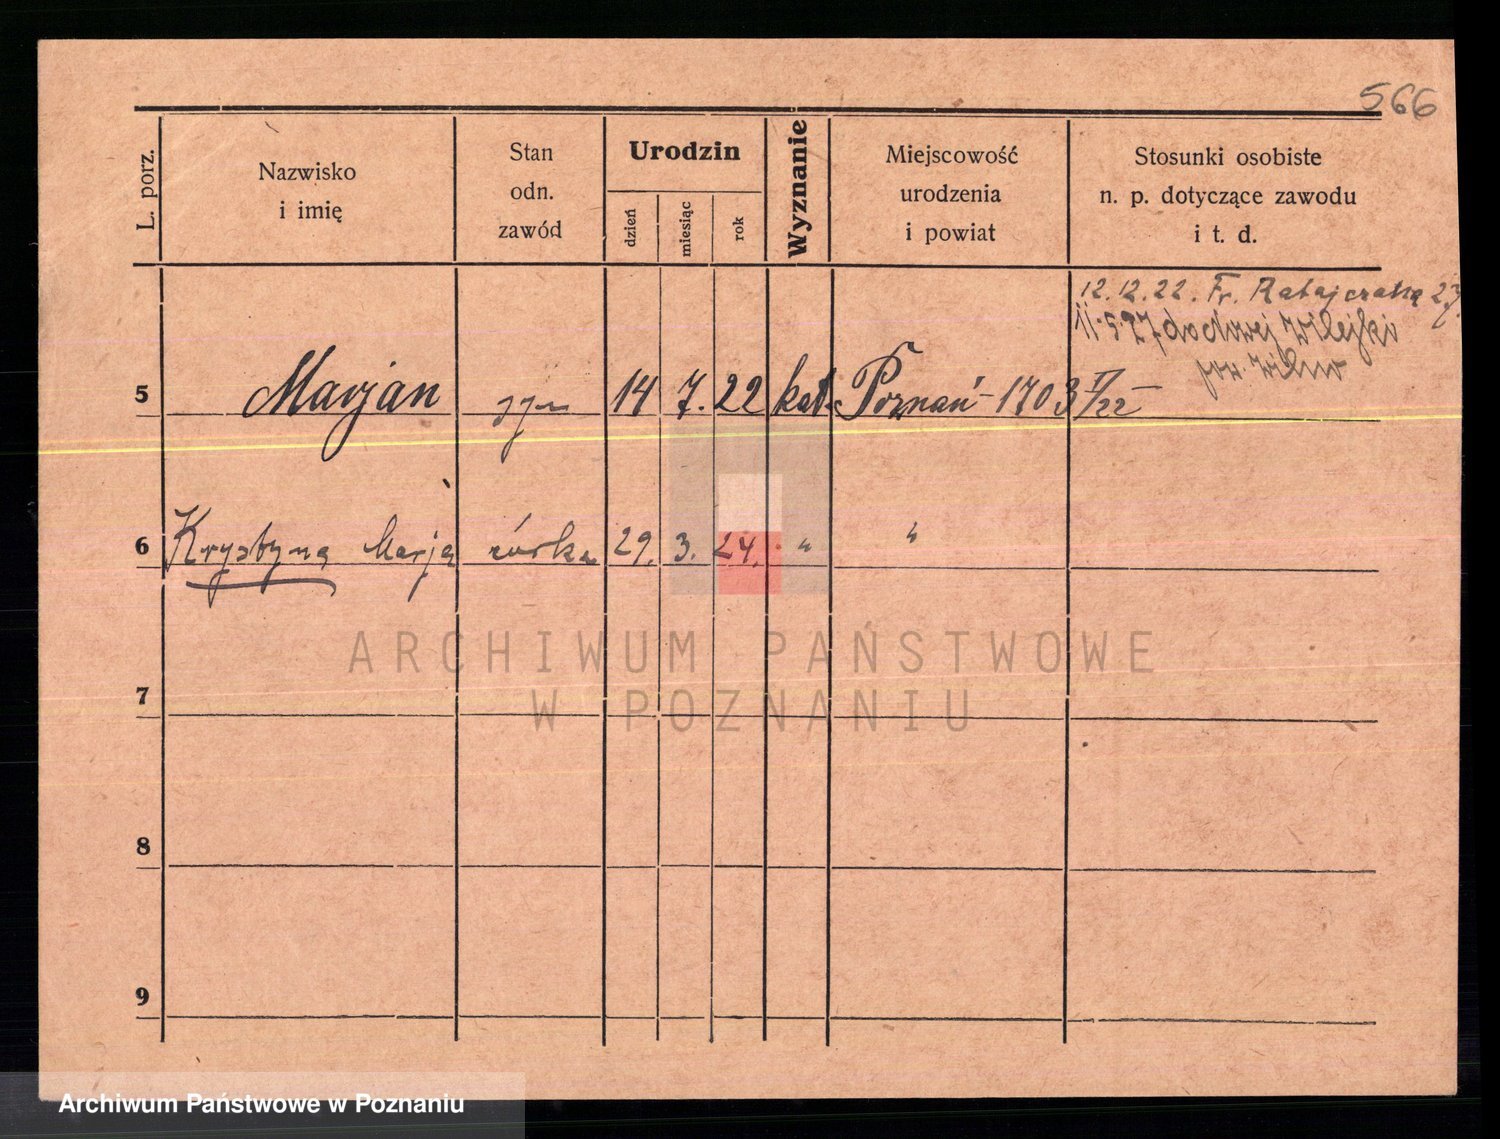 566
L. porz.
Nazwisko
i imię
Stan
odn.
zawód
Urodzin
dzień
miesiąc
rok
Wyznanie
Miejscowość
urodzenia
i powiat
Stosunki osobiste
n. p. dotyczące zawodu
i t. d.
12.12.22. Fr. Ratajczaka 23
11.5.27 do Nwej Wilejki
pow. Wilno
5 Marjan syn 14 7. 22 kat. Poznań - 1703 V/22
6 Krystyna Marja córka 29. 3. 24. " "
7
8
9
ARCHIWUM PAŃSTWOWE
W POZNANIU
Archiwum Państwowe w Poznaniu